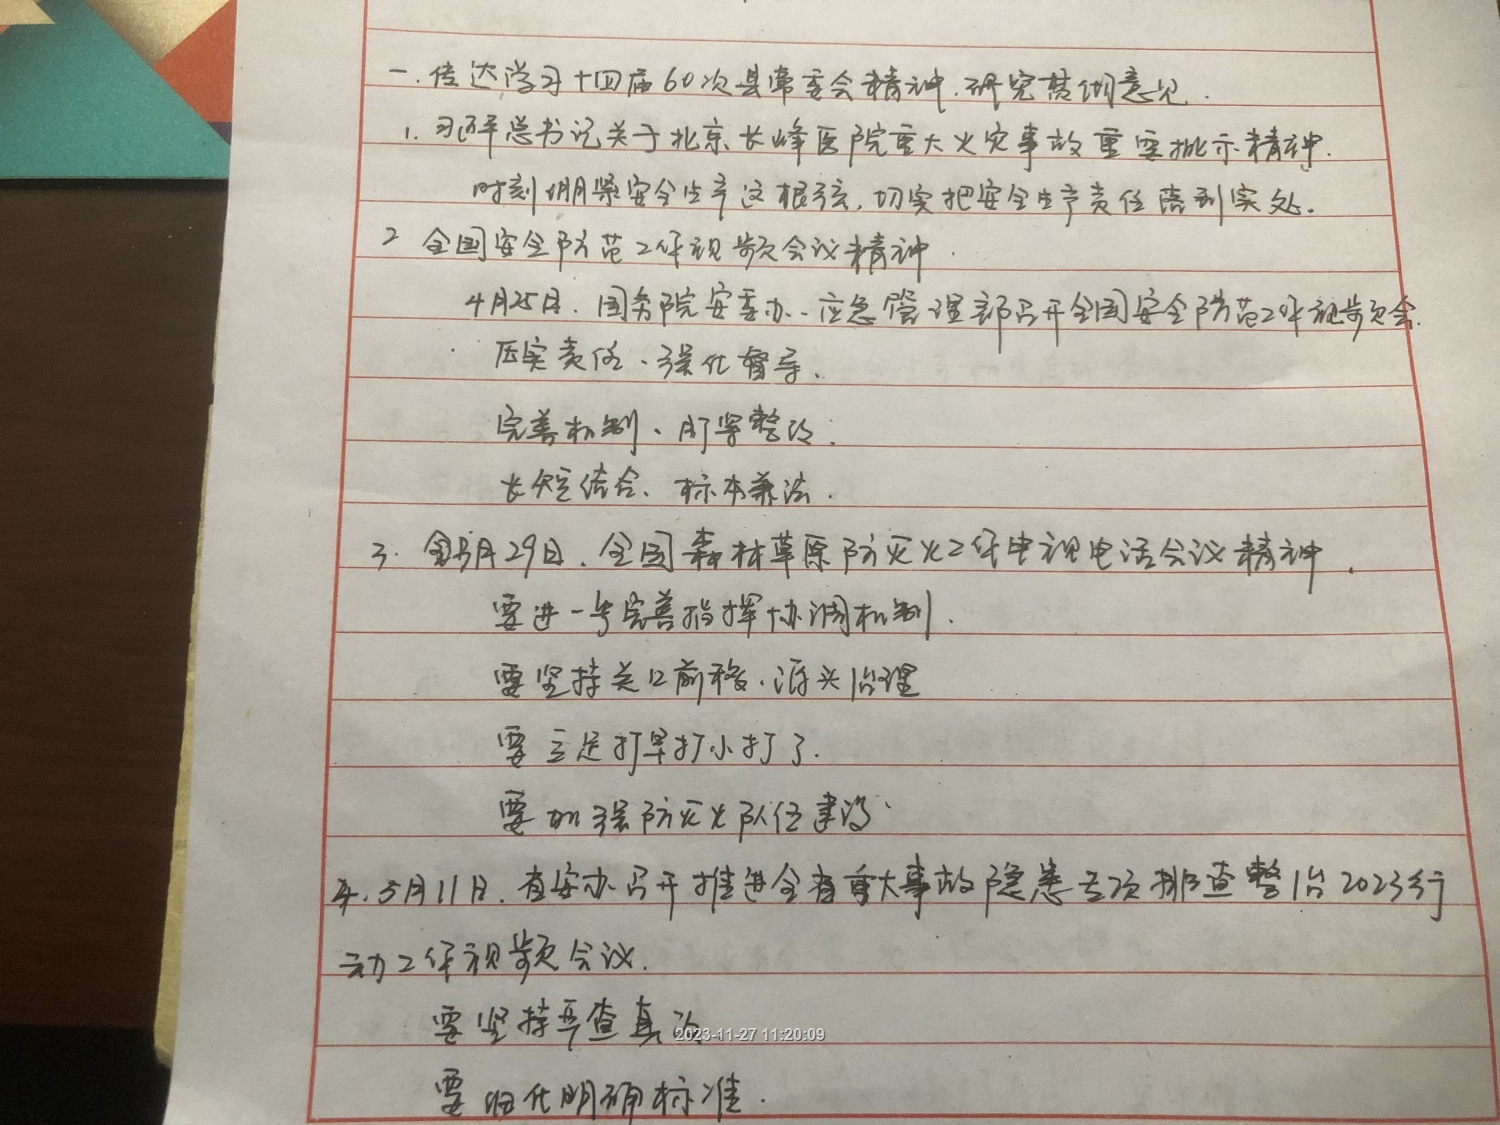 一、传达学习十四届60次县常委会精神、研究贯彻意见.
1. 习近平总书记关于北京长峰医院重大火灾事故重要批示精神.
时刻绷紧安全生产这根弦,切实把安全生产责任落到实处.
2 全国安全防范工作视频会议精神.
4月25日.国务院安委办、应急管理部召开全国安全防范工作视频会.
压实责任、强化督导、
完善机制、盯紧整改.
长短结合、标本兼治.
3. 月29日.全国森林草原防灭火工作电视电话会议精神.
要进一步完善指挥协调机制.
要坚持关口前移、源头治理
要立足打早打小打了.
要加强防灭火队伍建设.
4. 5月11日.省安办召开推进全省重大事故隐患专项排查整治2023行
动工作视频会议.
要坚持严查真改
要细化明确标准.
2023-11-27 11:20:09